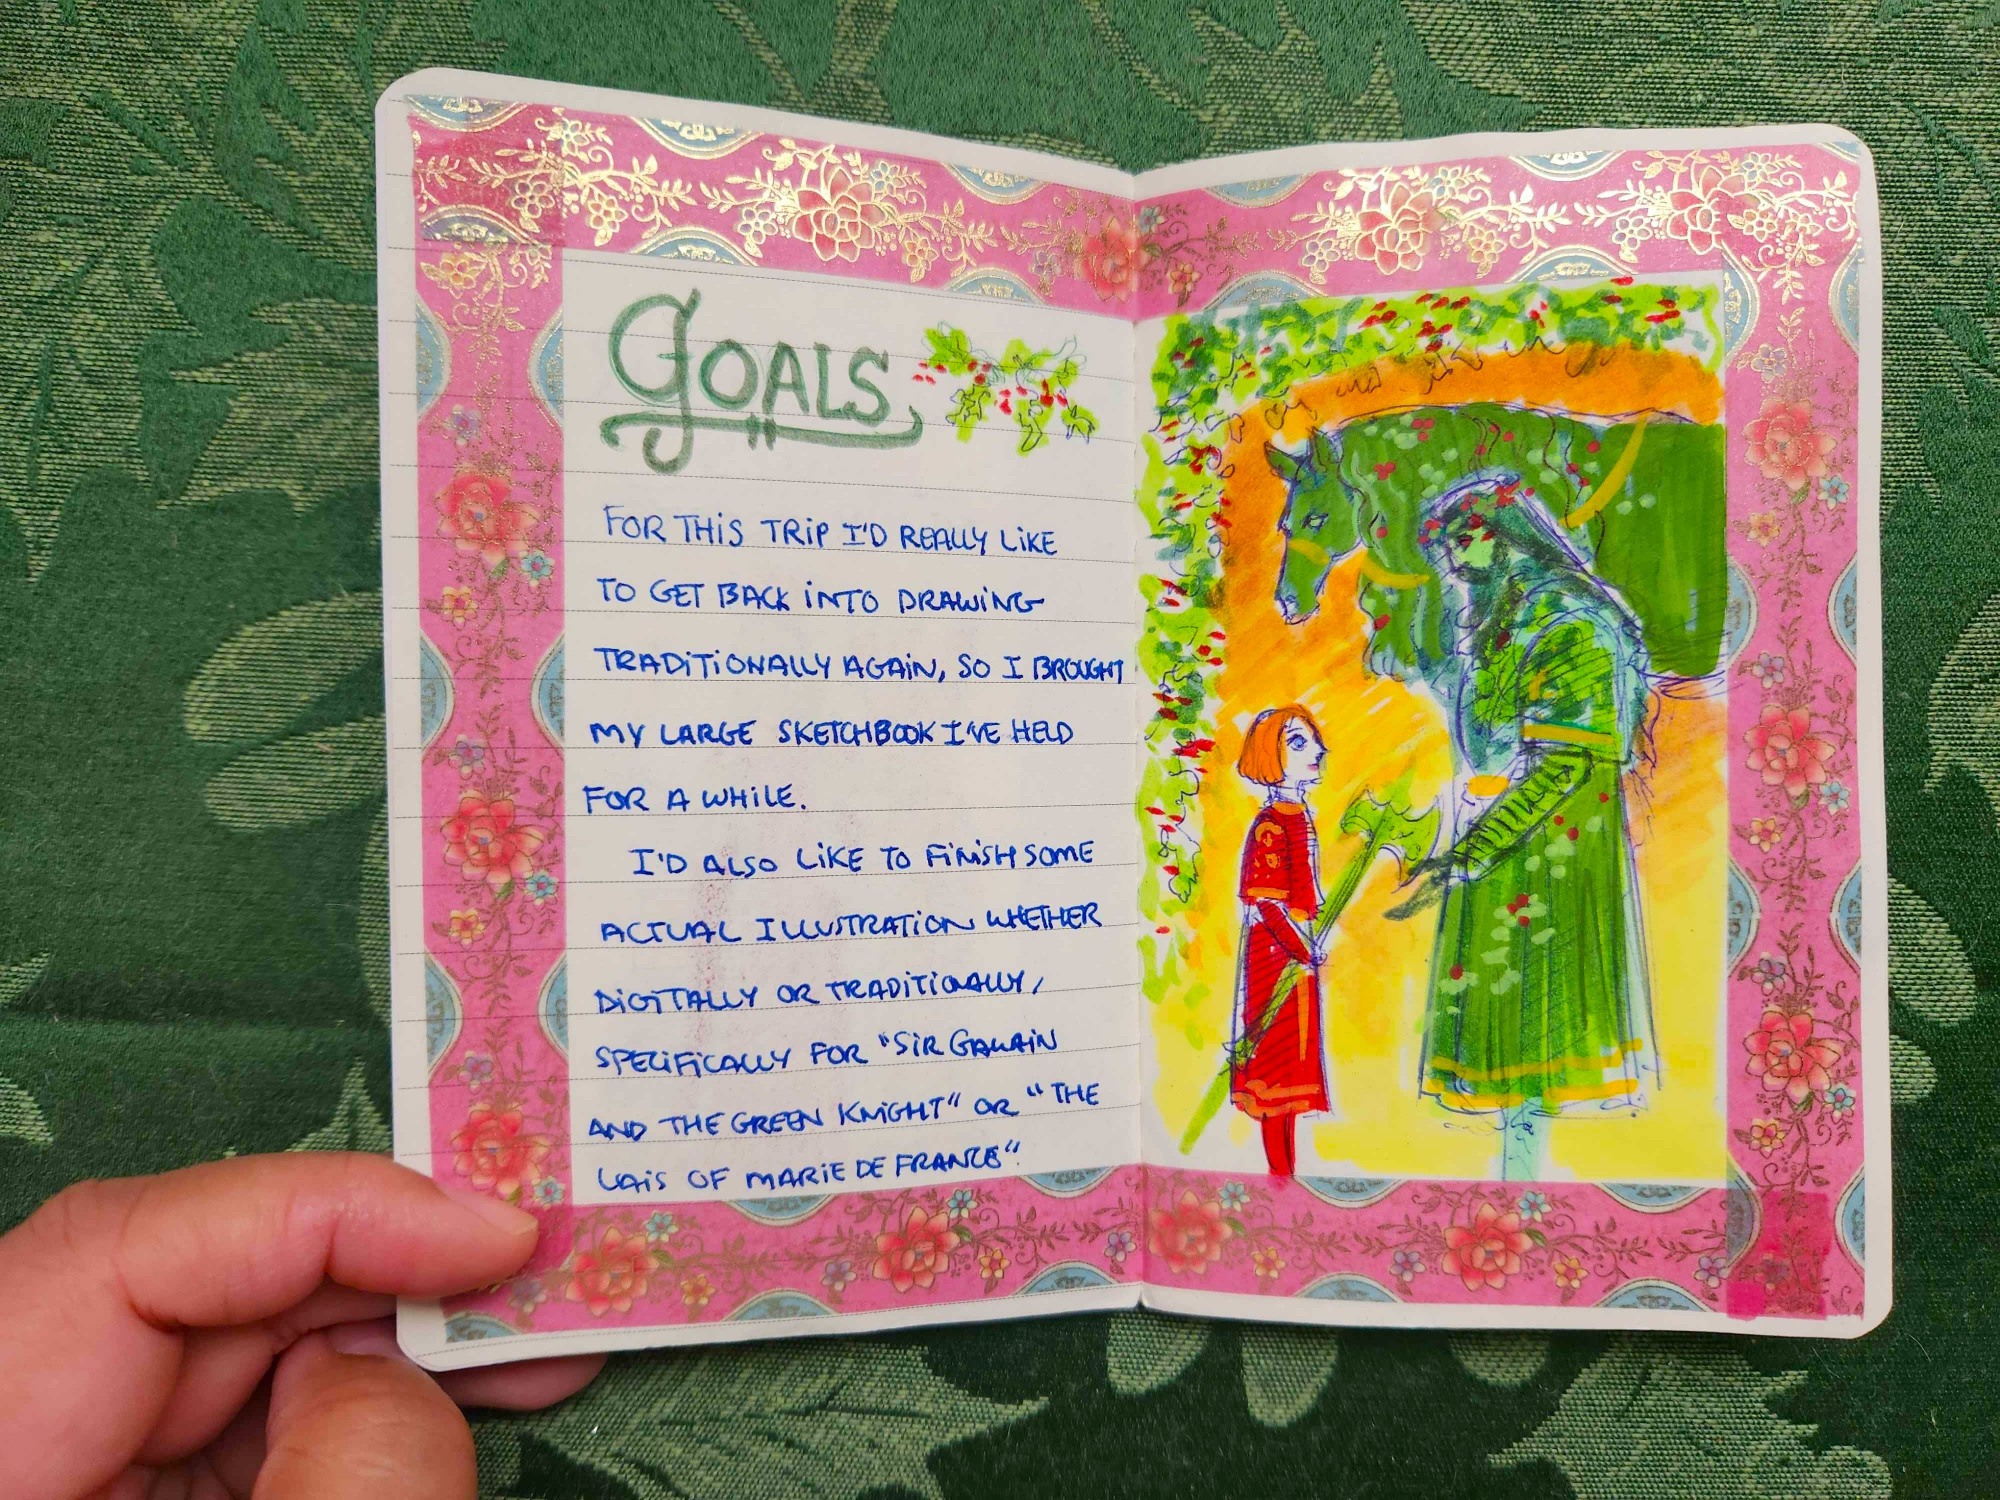 GOALS
FOR THIS TRIP I'D REALLY LIKE
TO GET BACK INTO DRAWING
TRADITIONALLY AGAIN, SO I BROUGHT
MY LARGE SKETCHBOOK I'VE HELD
FOR A WHILE.
I'D ALSO LIKE TO FINISH SOME
ACTUAL ILLUSTRATION WHETHER
DIGITALLY OR TRADITIONALLY,
SPECIFICALLY FOR "SIR GAWAIN
AND THE GREEN KNIGHT" OR "THE
LAIS OF MARIE DE FRANCE".